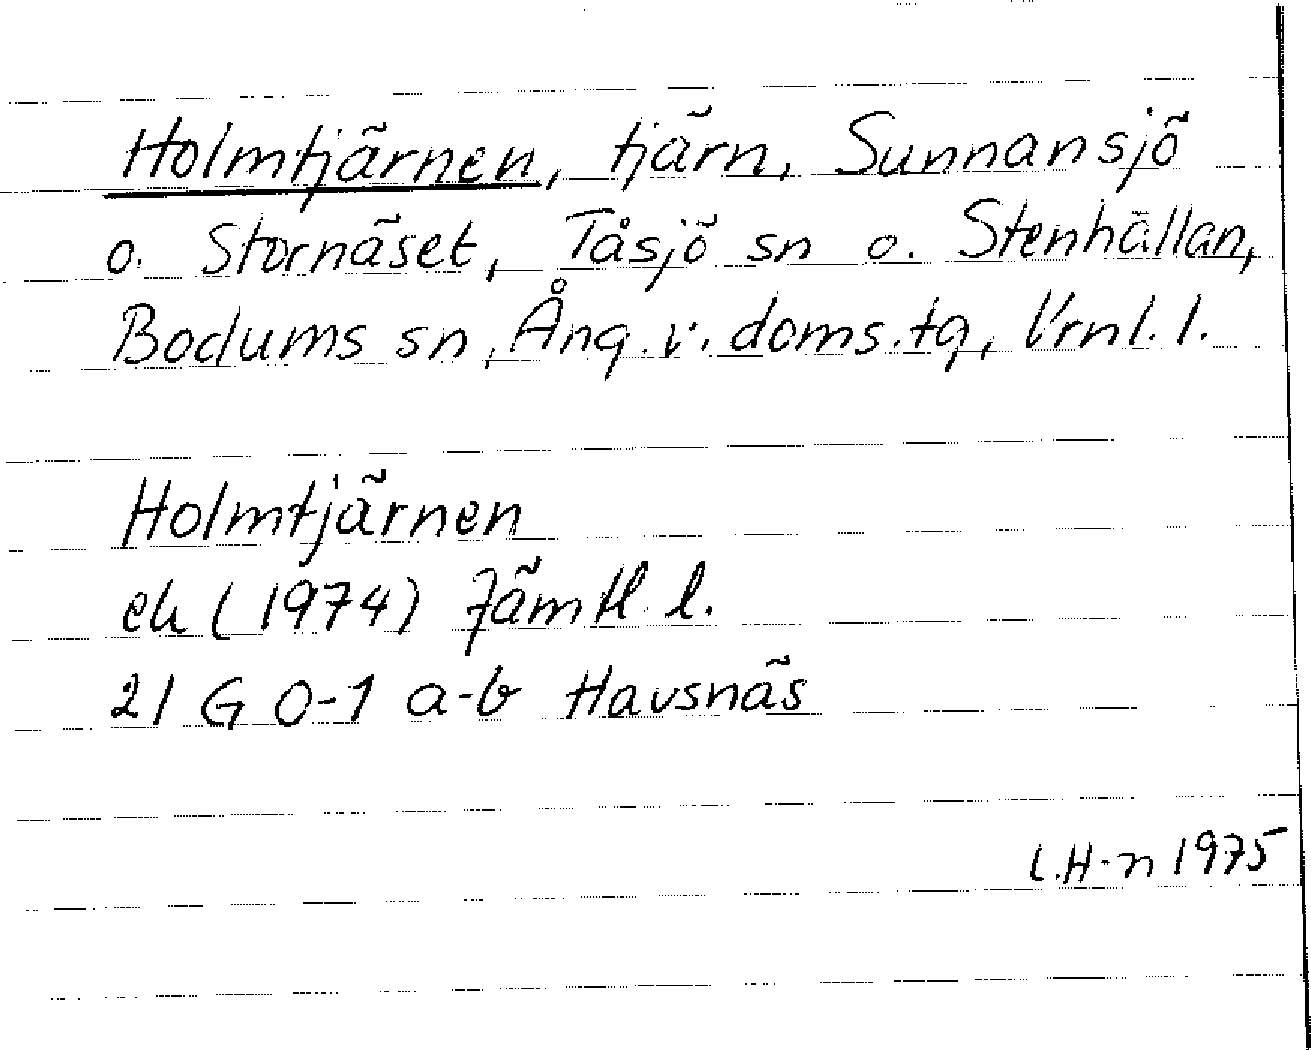 Holmtjärnen, tjärn, Sunnansjö
o. Stornäset, Tåsjö sn o. Stenhällan,
Bodums sn, Ång. v. doms.tg, Vrnl. l.
Holmtjärnen
ek (1974) Jämtl. l.
21 G 0-1 a-b Havsnäs
L.H-n 1975